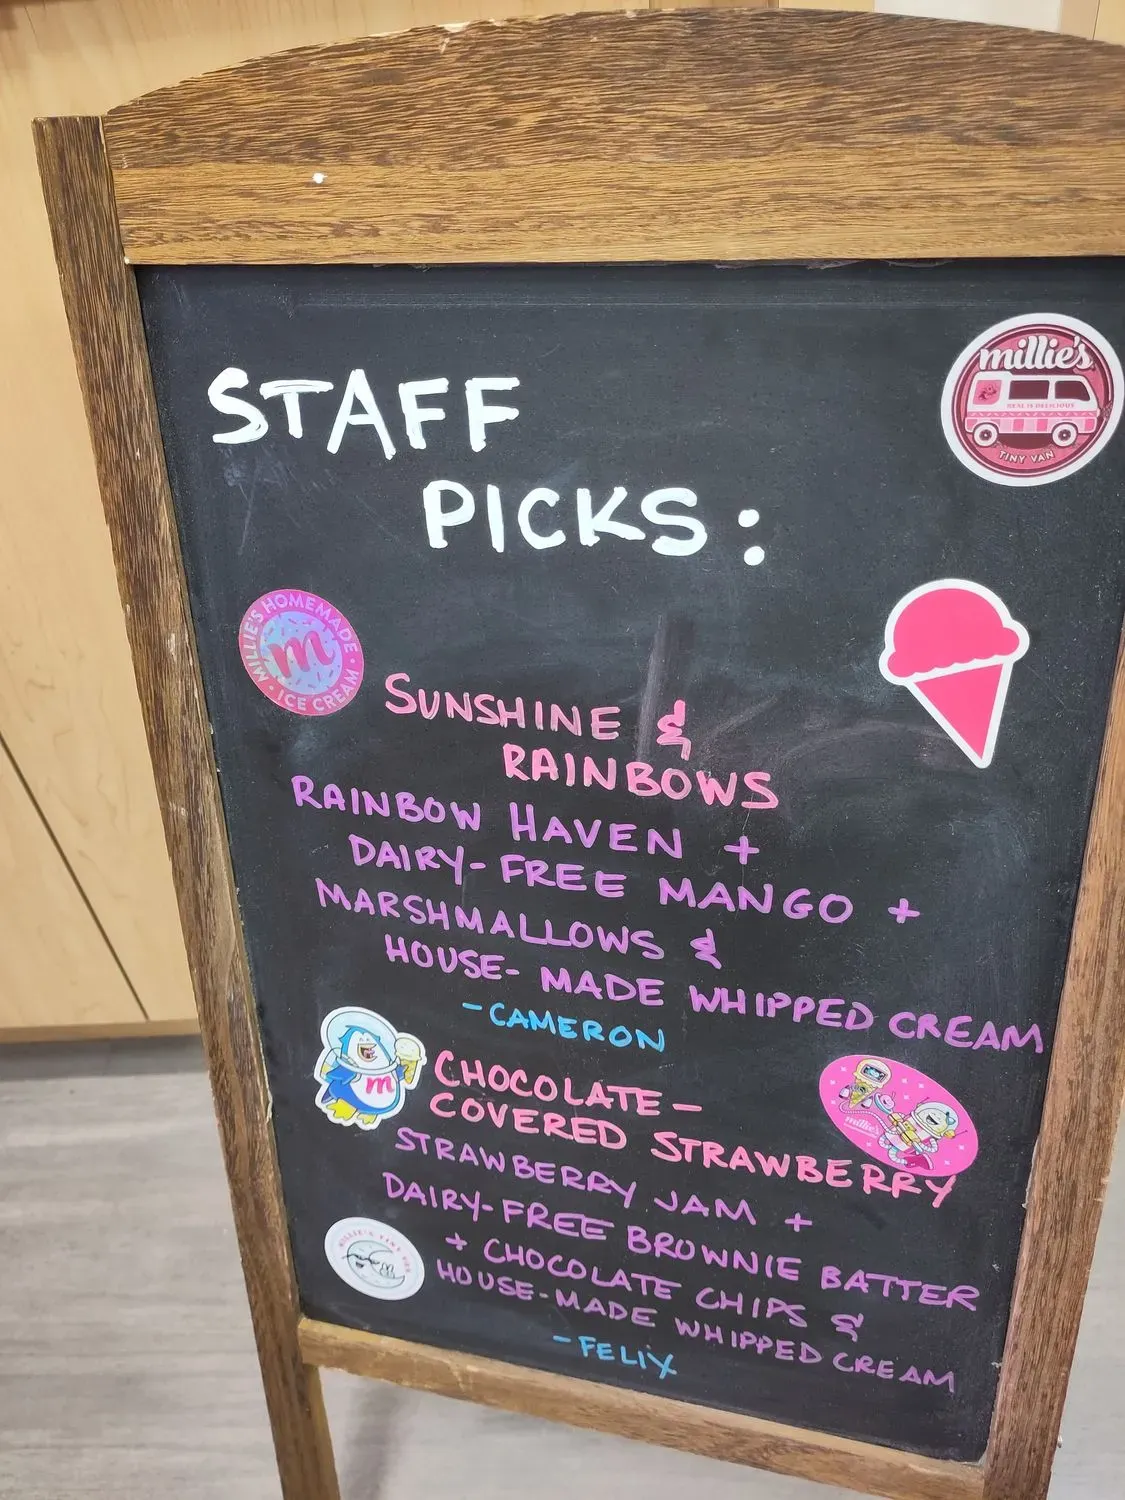 millie's
REAL IS DELICIOUS
TINY VAN
STAFF
PICKS:
MILLIE'S HOMEMADE
ICE CREAM
m
SUNSHINE &
RAINBOWS
RAINBOW HAVEN +
DAIRY-FREE MANGO +
MARSHMALLOWS &
HOUSE-MADE WHIPPED CREAM
-CAMERON
m
millie's
CHOCOLATE-
COVERED STRAWBERRY
STRAWBERRY JAM +
DAIRY-FREE BROWNIE BATTER
+ CHOCOLATE CHIPS &
HOUSE-MADE WHIPPED CREAM
-FELIX